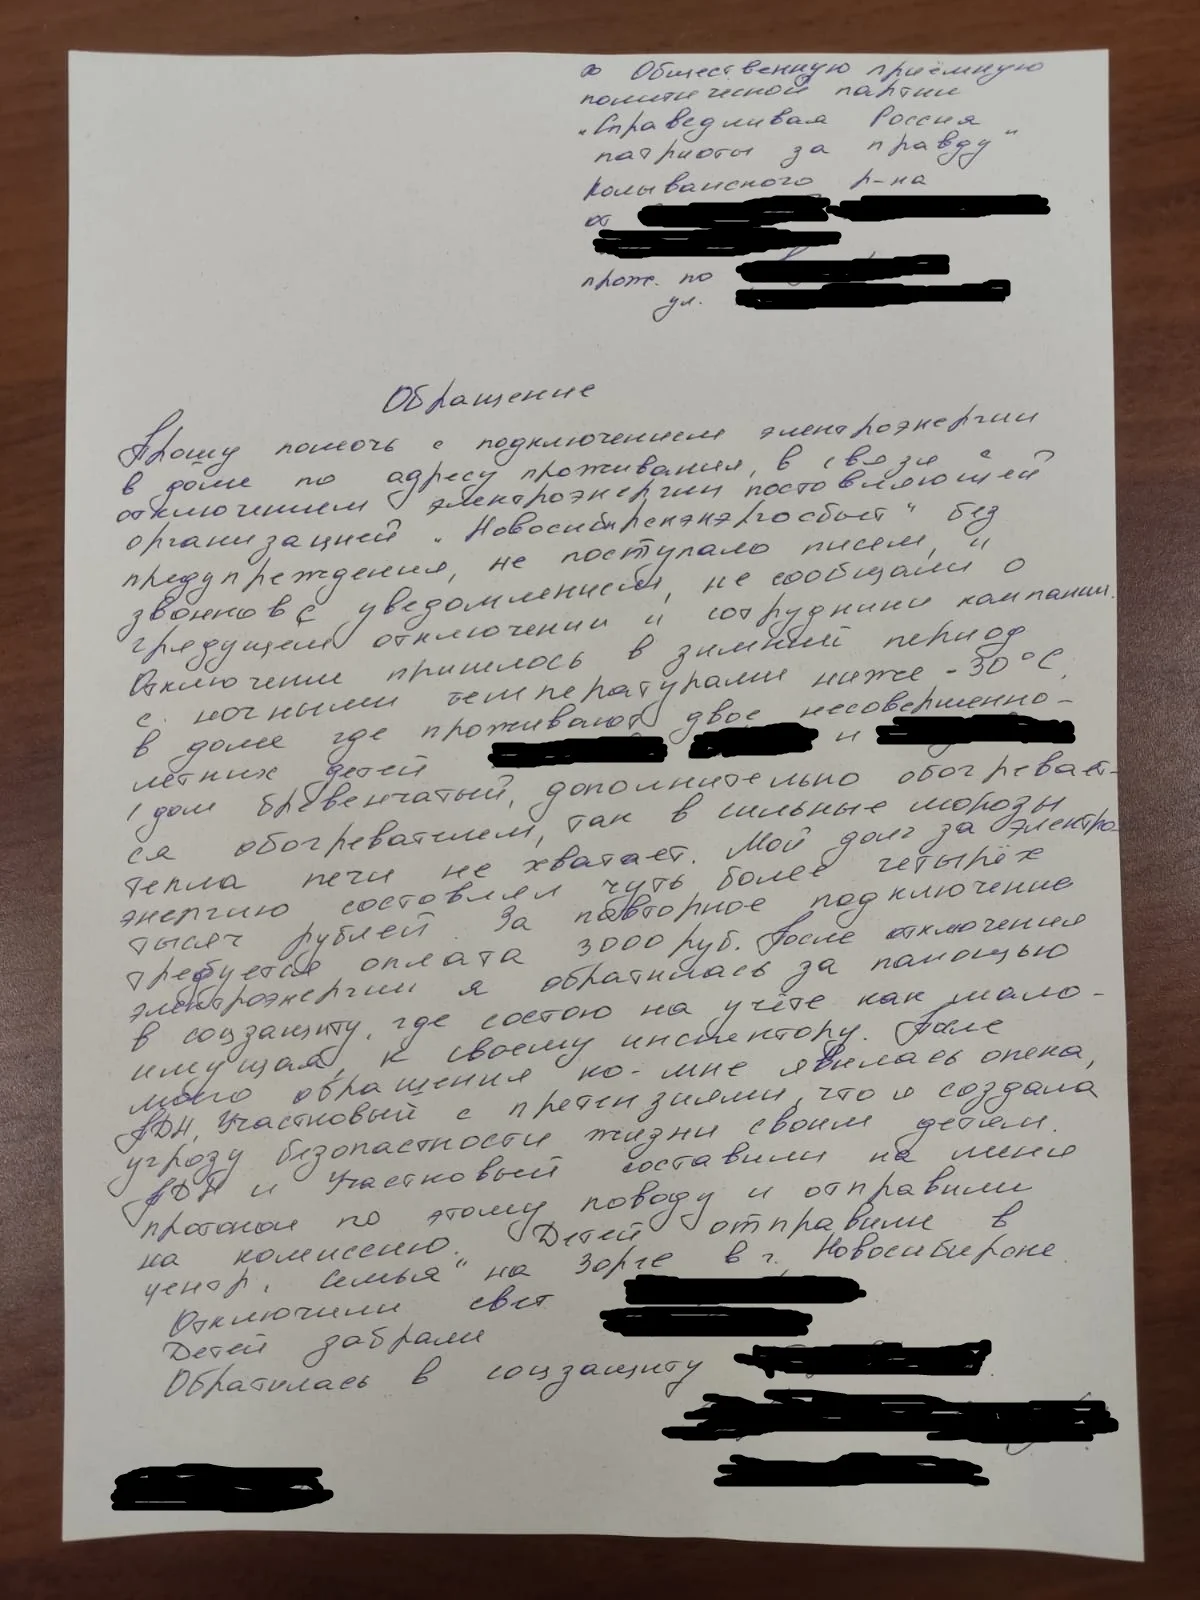 в Общественную приёмную
политической партии
„Справедливая Россия
патриоты за правду"
Колыванского р-на
от
прож. по
ул.
Обращение
Прошу помочь с подключением электроэнергии
в доме по адресу проживания, в связи с
отключением электроэнергии поставляющей
организацией „Новосибирскэнэргосбыт" без
предупреждения, не поступало писем, и
звонков с уведомлением, не сообщали о
грядущем отключении и сотрудники компании.
Отключение пришлось в зимний период
с ночными температурами ниже -30°С,
в доме где проживают двое несовершенно-
летних детей и
/дом бревенчатый, дополнительно обогревает-
ся обогревателем, так в сильные морозы
тепла печи не хватает. Мой долг за электро-
энергию составлял чуть более четырёх
тысяч рублей. За павторное подключение
требуется оплата 3000 руб. После отключения
электроэнергии я обратилась за помощью
в соцзащиту, где состою на учёте как мало-
имущая, к своему инспектору. После
моего обращения ко-мне явилась опека,
ПДН, Участковый с претензиями, что я создала
угрозу безопастности жизни своим детям.
ПДН и Участковый составили на меня
протокол по этому поводу и отправили
на комиссию. Детей отправили в
центр „Семья" на Зорге в г. Новосибирске.
Отключили свет
Детей забрали
Обратилась в соцзащиту